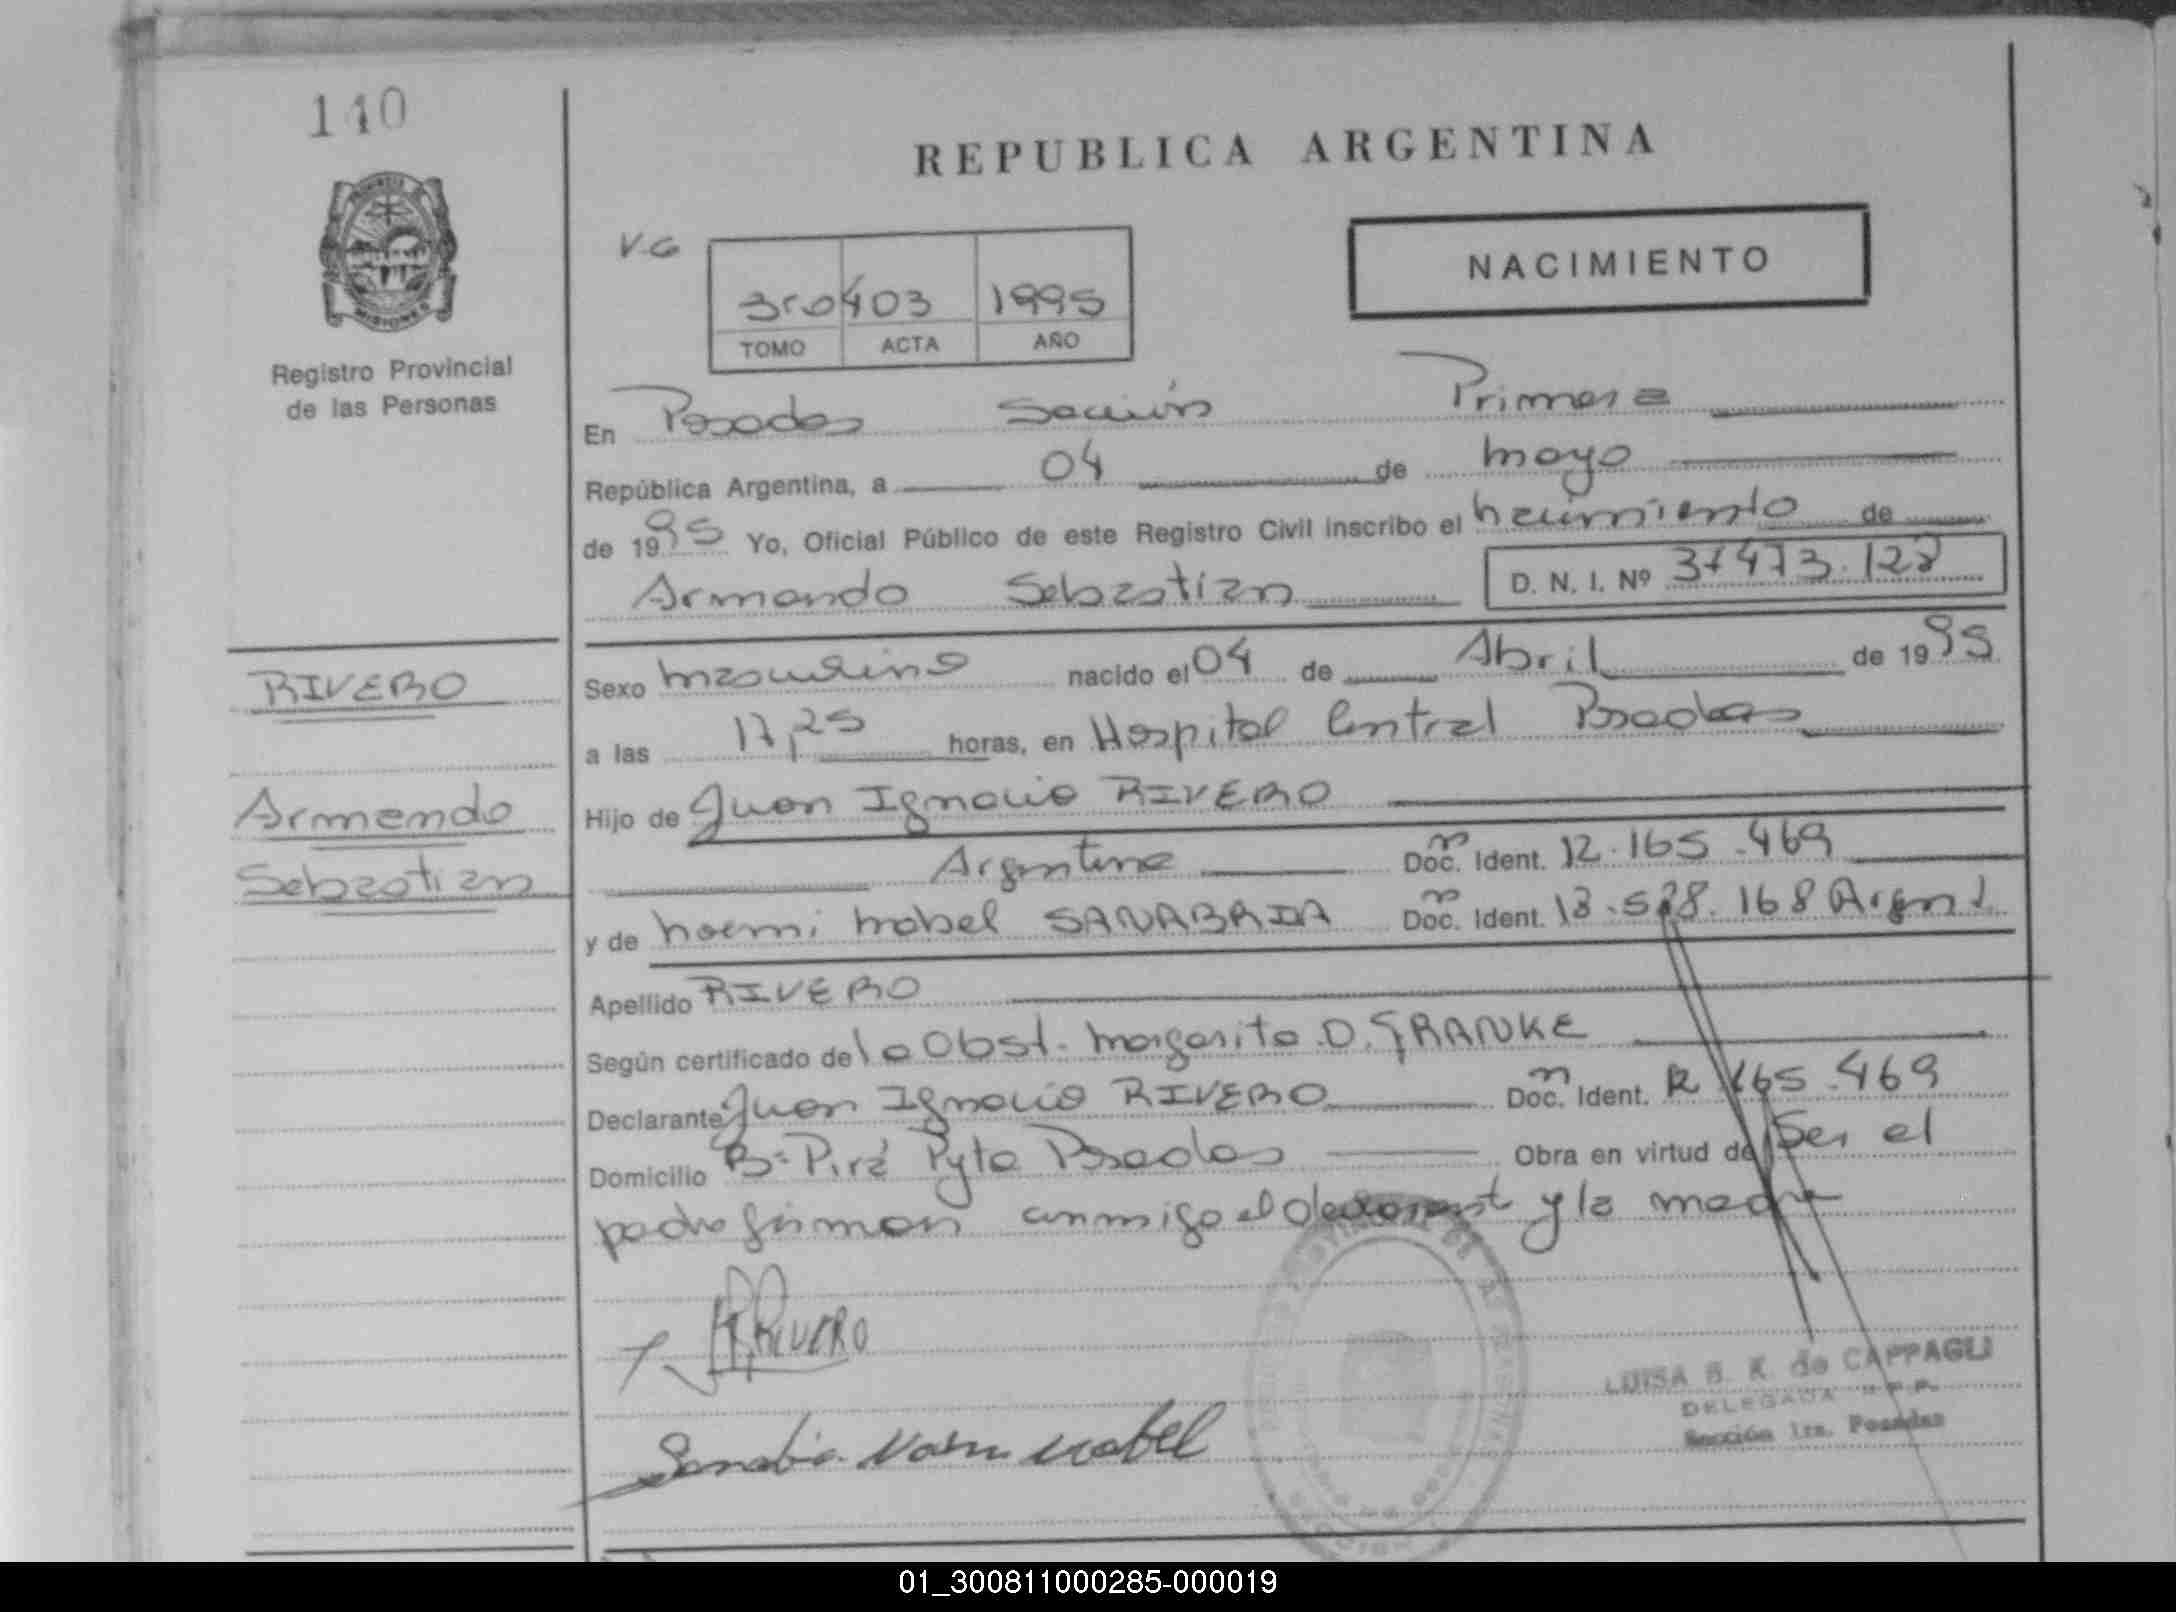 140
REPUBLICA ARGENTINA
V.G
NACIMIENTO
3ro 403 1995
TOMO ACTA AÑO
MISIONES
Registro Provincial
de las Personas
En Posadas Sección Primera
República Argentina, a 04 de mayo
de 1995 Yo, Oficial Público de este Registro Civil inscribo el nacimiento de
Armando Sebastian D. N. I. Nº 37473.128
RIVERO
Sexo masculino nacido el 04 de Abril de 1995
a las 17,25 horas, en Hospital Central Posadas
Armando
Hijo de Juan Ignacio RIVERO
Sebastian
Argentina Doc. Ident. 12.165.469
y de noemi mabel SANABRIA Doc. Ident. 13.528.168 Argent.
Apellido RIVERO
Según certificado de la Obst. margarita D. FRANKE
Declarante Juan Ignacio RIVERO Doc. Ident. 12.165.469
Domicilio Bº Pirá Pyta Posadas Obra en virtud de Ser el
padre firman conmigo el declarant y la madre
RIVERO
Sanabria Noemi Mabel
LUISA B. K. de CAPPAGLI
DELEGADA R.P.P.
Sección 1ra. Posadas
01_300811000285-000019